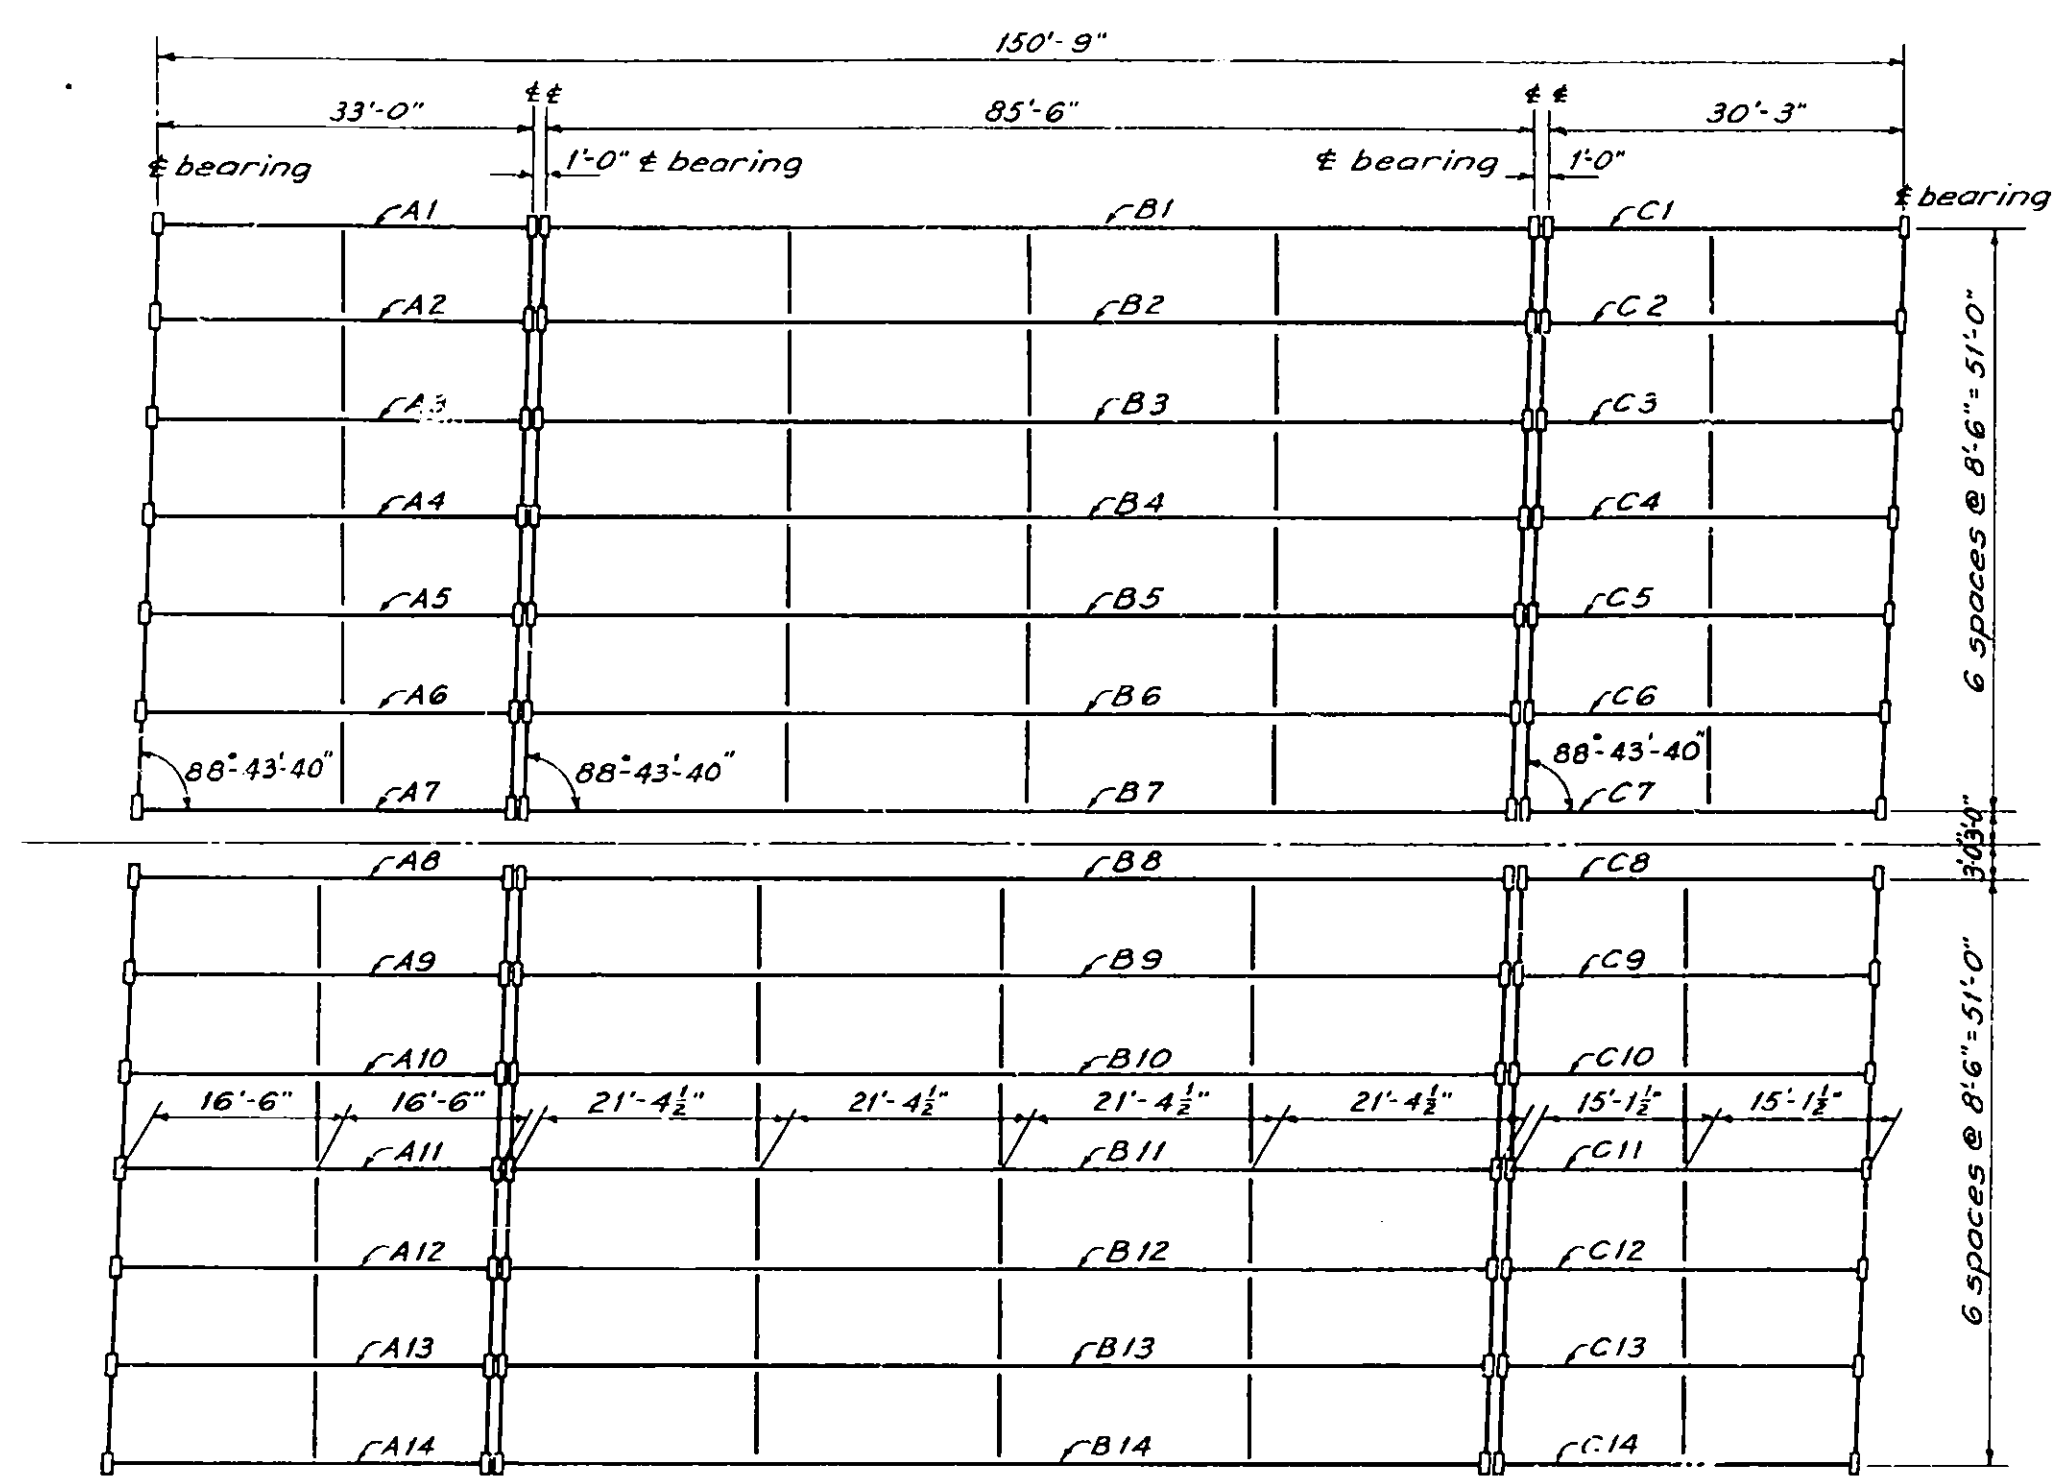 150'-9"
℄ ℄
℄ ℄
33'-0"
85'-6"
30'-3"
℄ bearing
1'-0"
℄ bearing
℄ bearing
1'-0"
℄ bearing
A1
B1
C1
A2
B2
C2
A3
B3
C3
A4
B4
C4
A5
B5
C5
A6
B6
C6
88°-43'-40"
88°-43'-40"
88°-43'-40"
A7
B7
C7
6 spaces @ 8'-6" = 51'-0"
3'-0"
3'-0"
A8
B8
C8
A9
B9
C9
A10
B10
C10
16'-6"
16'-6"
21'-4½"
21'-4½"
21'-4½"
21'-4½"
15'-1½"
15'-1½"
A11
B11
C11
A12
B12
C12
A13
B13
C13
A14
B14
C14
6 spaces @ 8'-6" = 51'-0"